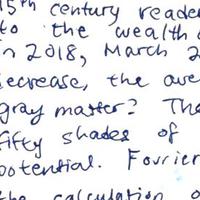 15th century reade
to the wealth
in 2018, March 2
decrease, the ave
gray matter? The
fifty shades of
potential. Fourier
the calculation o